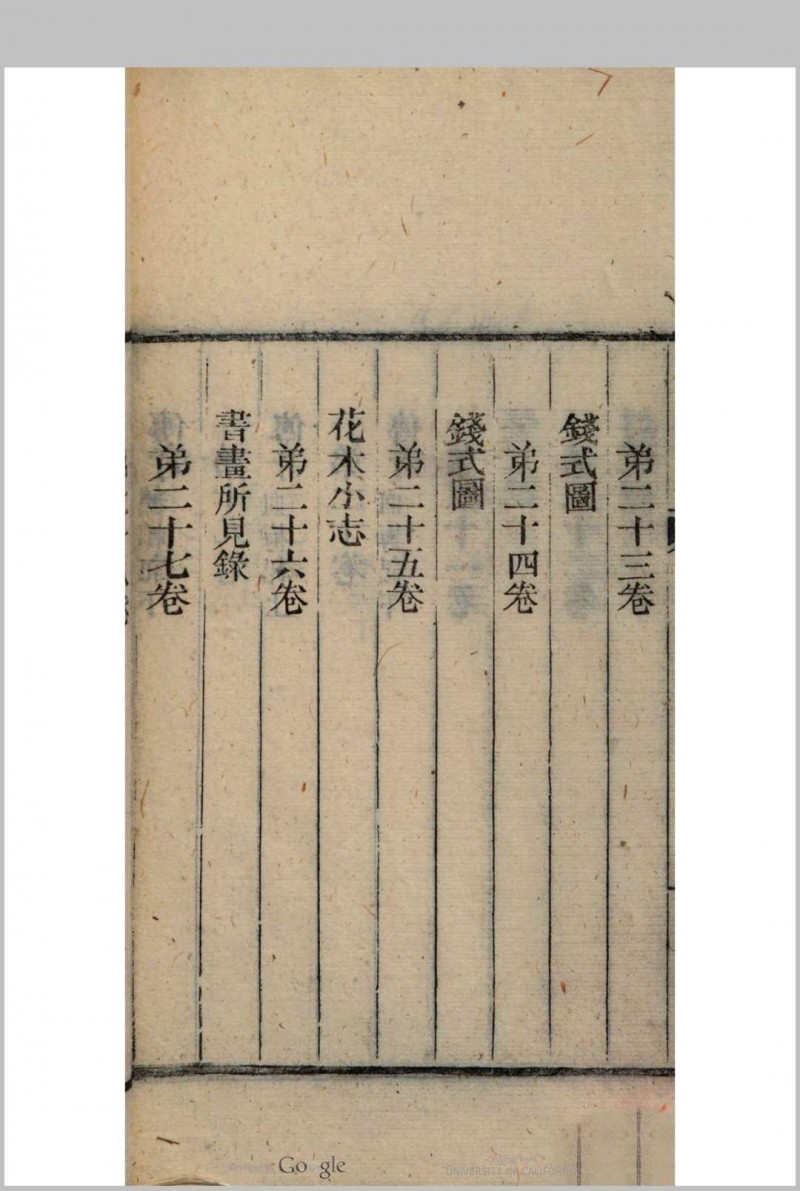 弟二十三卷
錢式圖
弟二十四卷
錢式圖
弟二十五卷
花木小志
弟二十六卷
書畫所見錄
弟二十七卷
Google
UNIVERSITY OF CALIFORNIA